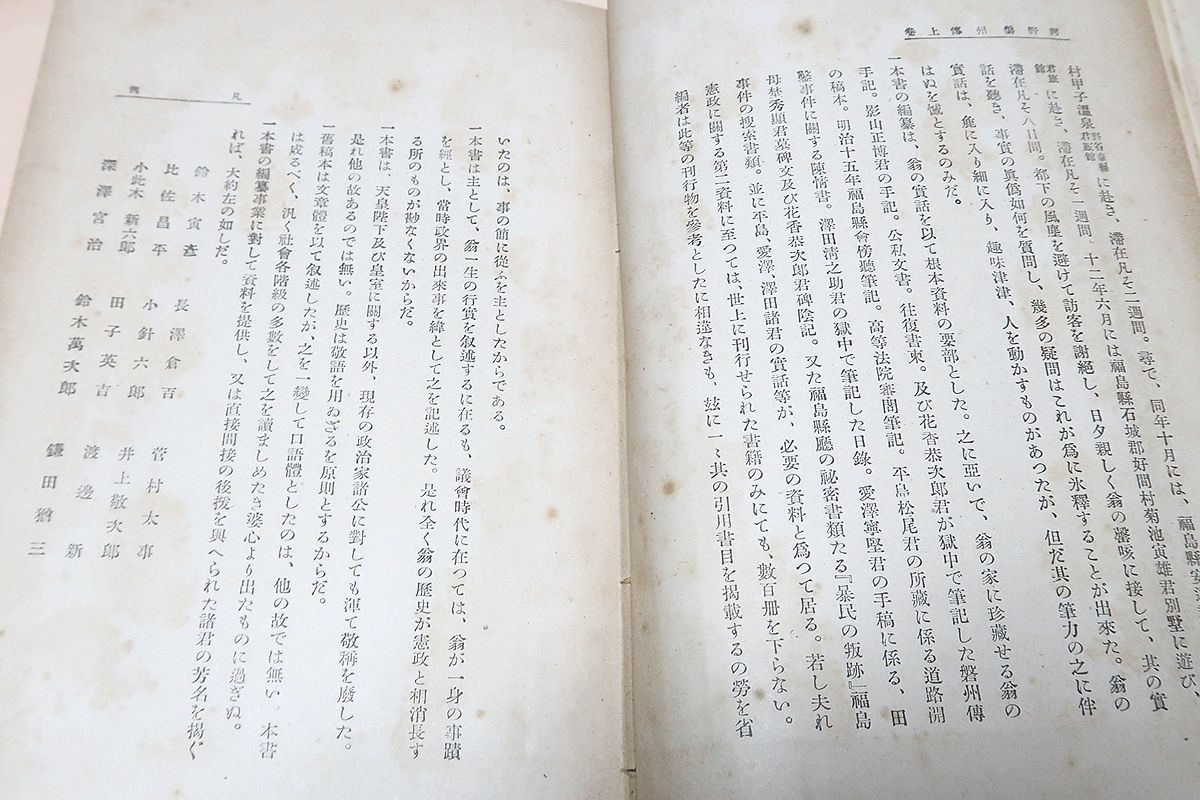 河野磐州傳上卷
村甲子溫泉に赴き、滯在凡そ二週間。尋で、同年十月には、福島縣
に赴き、滯在凡そ一週間。十二年六月には福島縣石城郡好間村菊池寅雄君別墅に遊び
滯在凡そ八日間。都下の風塵を避けて訪客を謝絕し、日夕親しく翁の謦咳に接して、其の實
話を聽き、事實の眞僞如何を質問し、幾多の疑問はこれが爲に氷釋することが出來た。翁の
實話は、微に入り細に入り、趣味津津、人を動かすものがあつたが、但だ其の筆力の之に伴
はぬを憾とするのみだ。
一本書の編纂は、翁の實話を以て根本資料の要部とした。之に亞いで、翁の家に珍藏せる翁の
手記。影山正博君の手記。公私文書。往復書柬。及び花香恭次郎君が獄中で筆記した磐州傳
の稿本。明治十五年福島縣會傍聽筆記。高等法院審問筆記。平島松尾君の所藏に係る道路開
鑿事件に關する陳情書。澤田淸之助君の獄中で筆記した日錄。愛澤寧堅君の手稿に係る、田
母埜秀顯君墓碑文及び花香恭次郎君碑陰記。又た福島縣廳の祕密書類たる『暴民の叛跡』福島
事件の搜索書類。並に平島、愛澤、澤田諸君の實話等が、必要の資料と爲つて居る。若し夫れ
憲政に關する第二資料に至つては、世上に刊行せられた書籍のみにても、數百册を下らない。
編者は此等の刊行物を參考としたに相違なきも、玆に一〻其の引用書目を揭載するの勞を省
凡例
いたのは、事の簡に從ふを主としたからである。
一本書は主として、翁一生の行實を叙述するに在るも、議會時代に在つては、翁が一身の事蹟
を經とし、當時政界の出來事を緯として之を記述した。是れ全く翁の歷史が憲政と相消長す
る所のものが尠なくないからだ。
一本書は、天皇陛下及び皇室に關する以外、現在の政治家諸公に對しても渾て敬稱を廢した。
是れ他の故あるのでは無い。歷史は敬語を用ゐざるを原則とするからだ。
一舊稿本は文章體を以て叙述したが、之を一變して口語體としたのは、他の故では無い、本書
は成るべく、汎く社會各階級の多數をして之を讀ましめたき婆心より出たものに過ぎぬ。
一本書の編纂事業に對して資料を提供し、又は直接間接の後援を與へられた諸君の芳名を揭ぐ
れば、大約左の如しだ。
鈴木寅彥 長澤倉吉 菅村太事
比佐昌平 小針六郎 井上敬次郎
小此木新六郎 田子英吉 渡邊新
深澤宮治 鈴木萬次郎 鎌田猶三